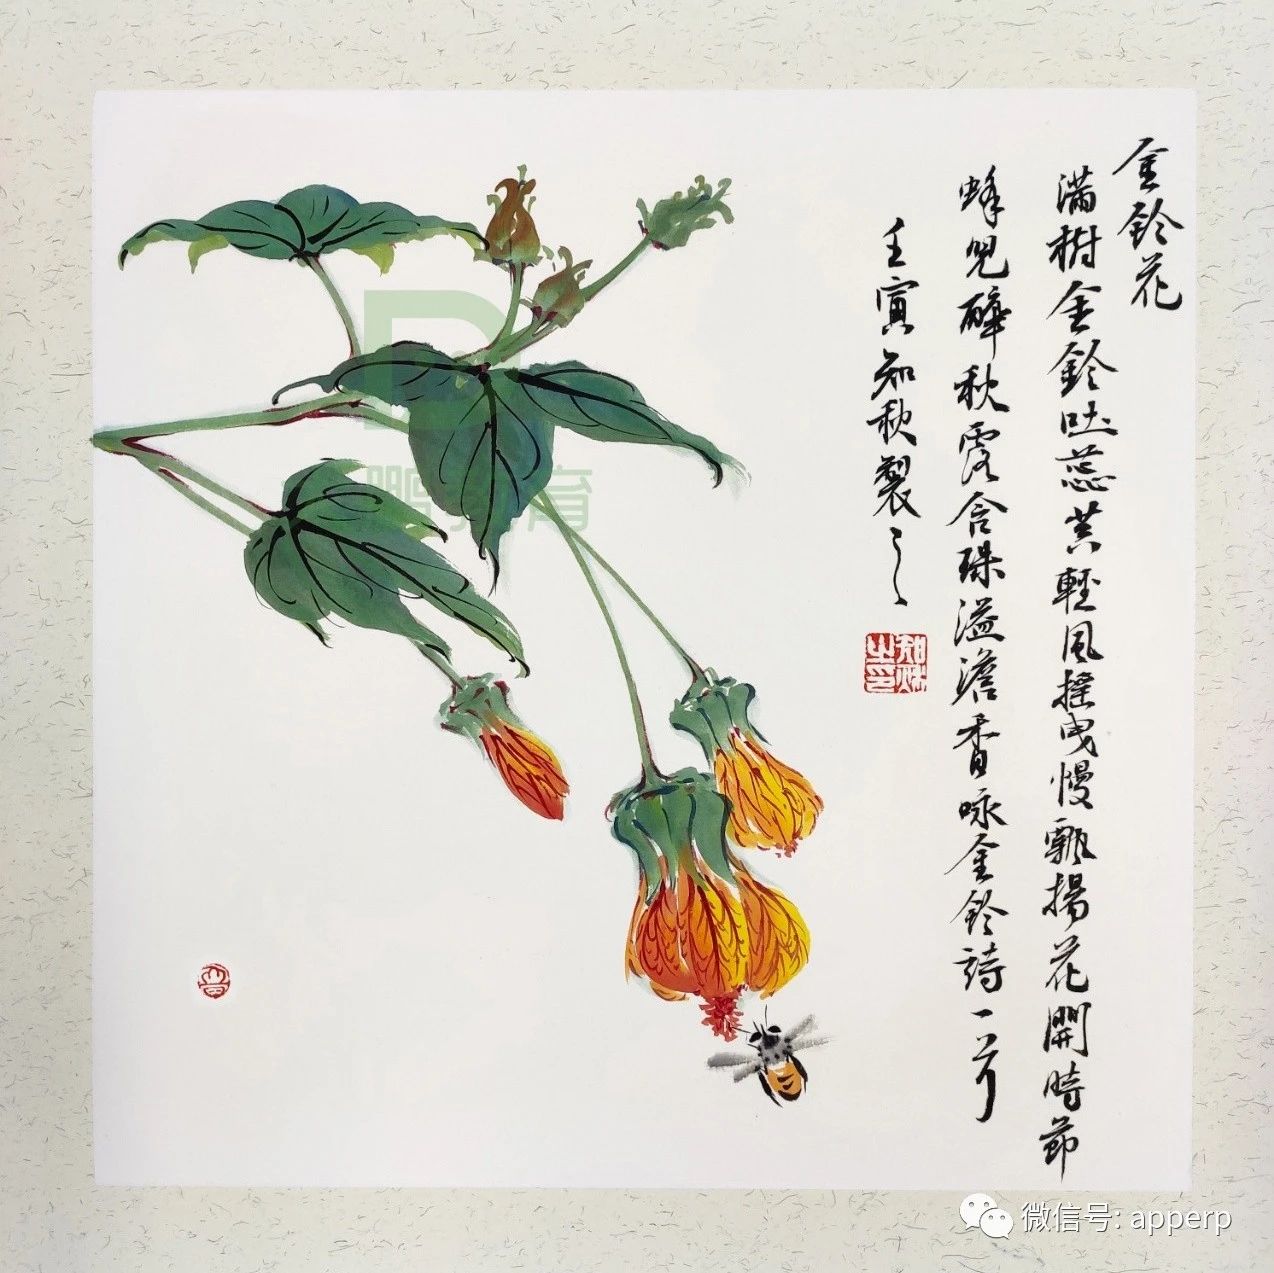 金鈴花
滿樹金鈴吐蕊黄輕風搖曳慢飄揚花開時節
蜂兒醉秋露含珠溢澹香咏金鈴詩一首
壬寅知秋製之
知秋之印
微信号: apperp